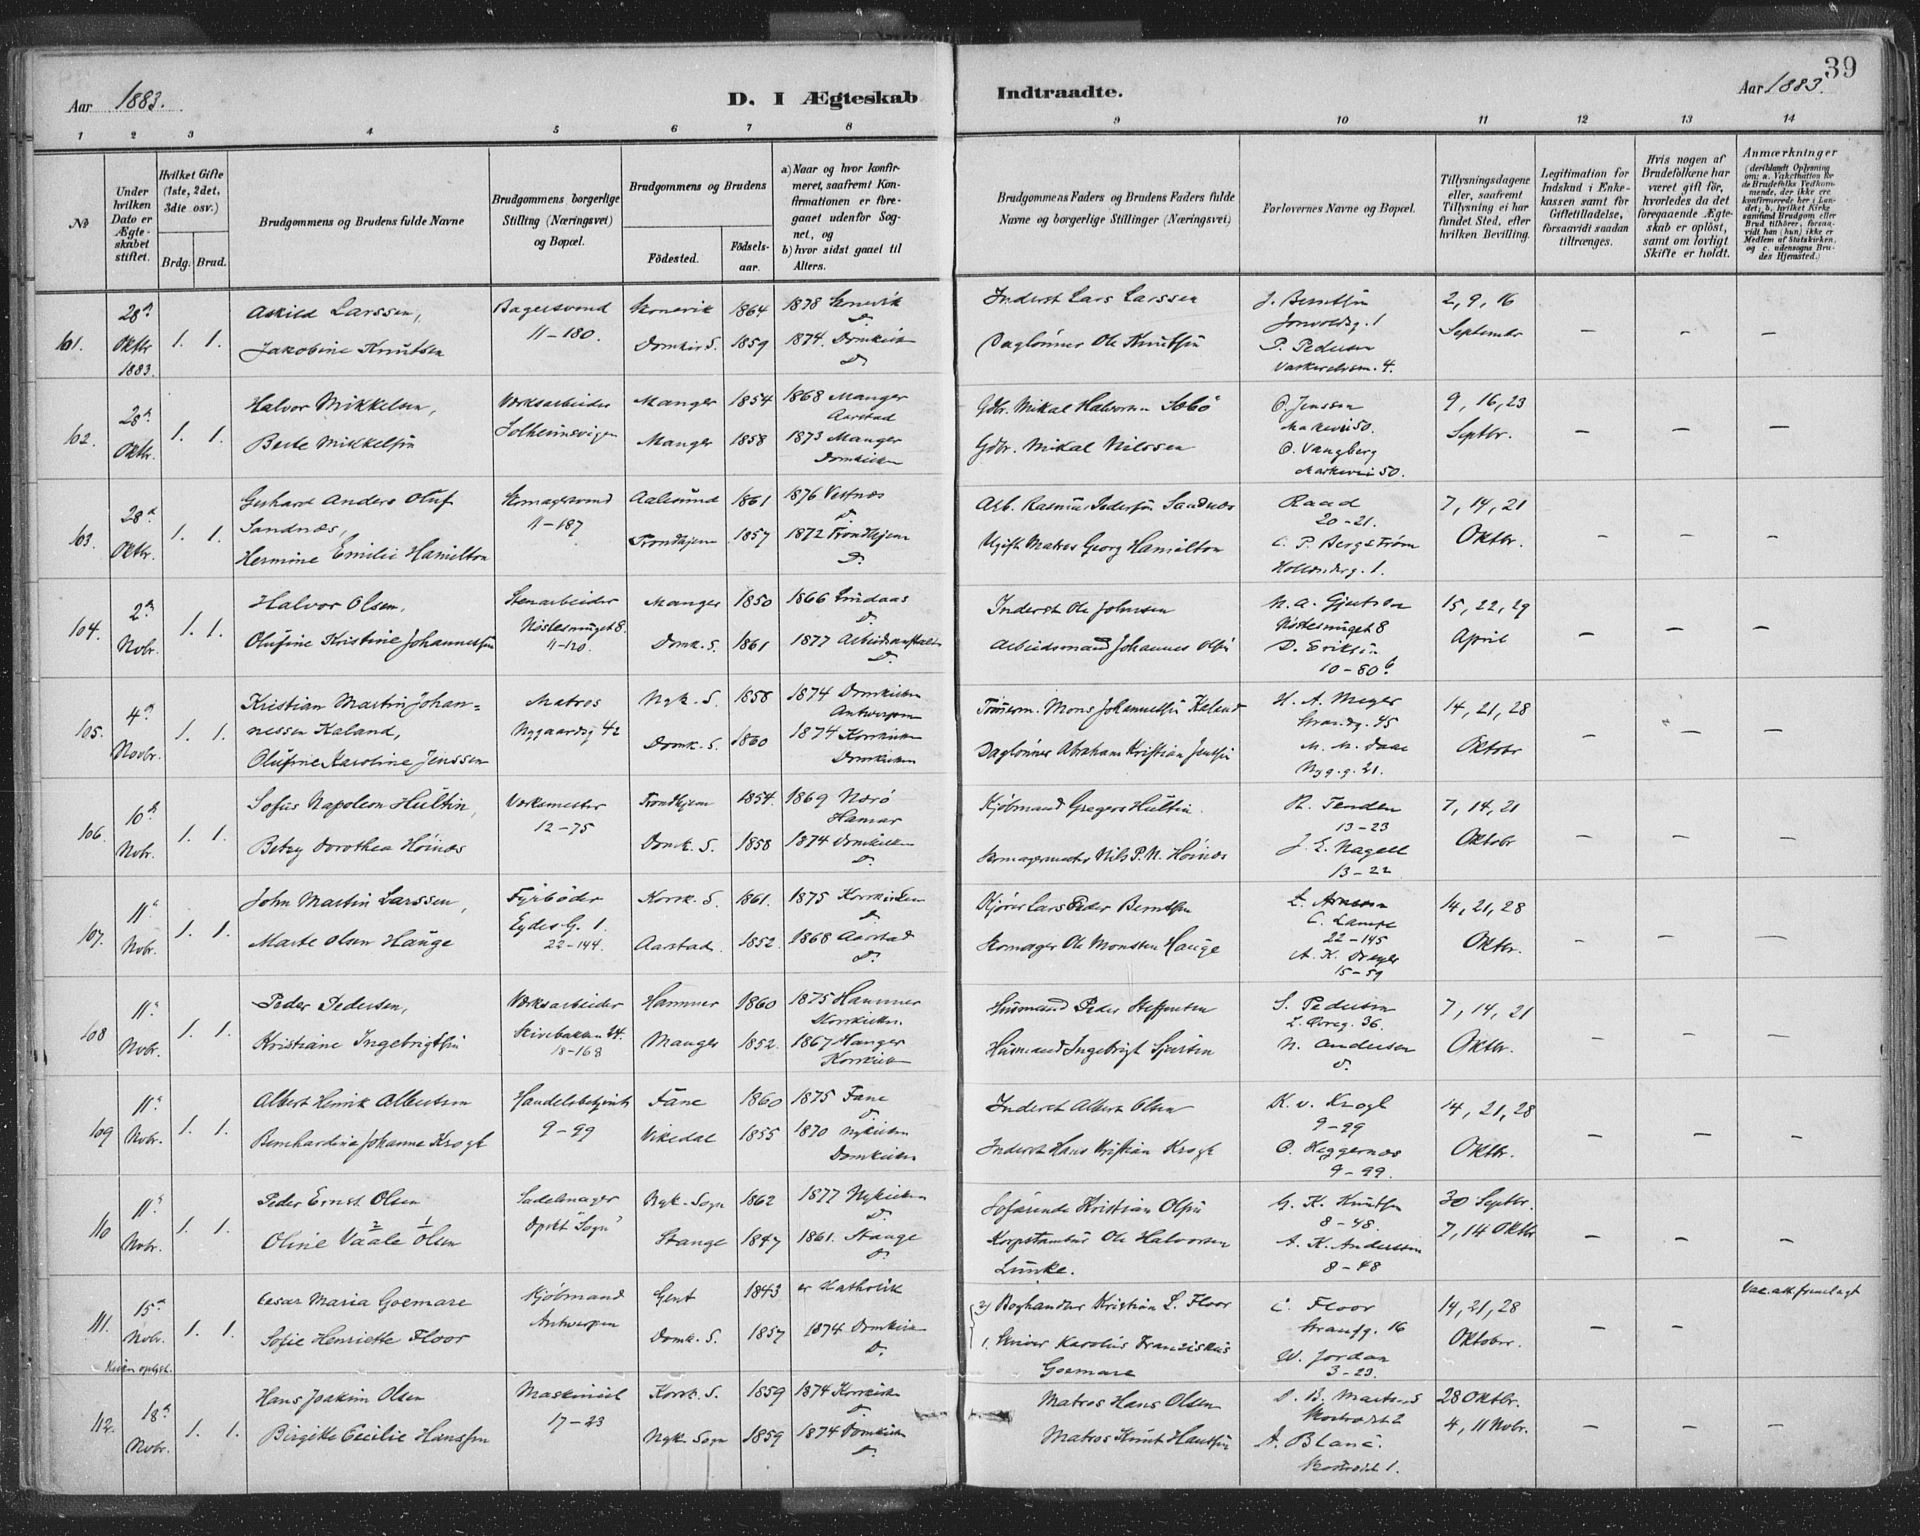 39
Aar 1883.
D. I Ægteskab Indtraadte.
Aar 1883.
1 2 3 4 5 6 7 8 9 10 11 12 13 14
No
Under hvilken Dato er Ægteskabet stiftet.
Hvilket Gifte (1ste, 2det, 3die osv.)
Brdg. Brud.
Brudgommens og Brudens fulde Navne
Brudgommens borgerlige Stilling (Næringsvei) og Bopæl.
Brudgommens og Brudens
Födested. Födselsaar.
a) Naar og hvor konfirmeret, saafremt Konfirmationen er foregaaet udenfor Sognet, og
b) hvor sidst gaaet til Alters.
Brudgommens Faders og Brudens Faders fulde Navne og borgerlige Stillinger (Næringsvei)
Forlovernes Navne og Bopæl.
Tillysningsdagene eller, saafremt Tillysning ei har fundet Sted, efter hvilken Bevilling.
Legitimation for Indskud i Enkekassen samt for Giftetilladelse, forsaavidt saadan tiltrænges.
Hvis nogen af Brudefolkene har været gift för, hvorledes da det foregaaende Ægteskab er oplöst, samt om lovligt Skifte er holdt.
Anmærkninger
(deriblandt Oplysning om: a. Vakcination for de Brudefolks Vedkommende, der ikke ere konfirmerede her i Landet; b. hvilket Kirkesamfund Brudgom eller Brud tilhörer, forsaavidt han (hun) ikke er Medlem af Statskirken, og c. udensogns Brudes Hjemsted.)
101. 28d Oktbr 1883. 1. 1.
Askild Larssen, Bagersvend Skonevik 1864 1878 Skonevik d. Inderst Lars Larssen J. Berntsen 2, 9, 16
Jakobine Knutsen 11-180. Domkir S. 1859 1874. Domkirk d. Daglönner Ole Knutsen P. Pedersen September - - -
102. 28d Oktbr. 1. 1.
Halvor Mikkelsen, Værksarbeider Manger 1854 1868 Manger Aarstad Gdbr. Mikal Halvorsen Sæbö O. Jenssen Markevei 50. 9, 16, 23
Berte Mikkelsen Solheimsvigen Manger 1858 1873 Manger Domkirken Gdbr. Mikal Nilssen O. Vangberg Markevei 50. Septbr. - - -
103. 28d Oktbr. 1. 1.
Gerhard Anders Oluf Sandnæs, Skomagersvend Aalesund 1861 1876 Vestnæs d. Arb. Rasmus Pedersen Sandnæs Raad 20-21. 7, 14, 21
Hermine Emilie Hamilton 11-187 Trondhjem 1857 1872 Trondhjem d. Ugift Matros Georg Hamilton C. P. Bergström Oktbr. - - -
104. 2d Novbr. 1. 1.
Halvor Olsen, Stenarbeider Manger 1850 1866 Lindaas d. Inderst Ole Johnsen N. A. Gjertsen Nöstesmuget 8 15, 22, 29
Olufine Kristine Johannessen Nöstesmuget 8. 11-120. Domk. S. 1861 1877 Arbeidsanstalten d. Arbeidsmand Johannes Olsen D. Eriksen 10-80b April - - -
105. 4d Novbr. 1. 1.
Kristian Martin Johannessen Kaland, Matros Nyk. S. 1858 1874 Domkirken Antwerpen Mons Johannessen Kaland H. A. Meyer Strandg. 45 14, 21, 28
Olufine Karoline Jenssen Nygaardsg 42 Domk. S. 1860 1874 Korskirken Domkirken Daglönner Abraham Kristian Jenssen M. M. Daae Nyg.g. 21. Oktobr - - -
106 10d Novbr. 1. 1.
Sofus Napoleon Hultin, Værkmester Trondhjem 1854. 1869 Nærö Hamar Kjöbmand Gregers Hultin R. Tenden 13-23 7, 14, 21
Betzy Dorothea Höinæs 12-75 Domk. S. 1858 1874 Domkirken d. Skomagermester Nils P. N. Höinæs J. E. Nagell 13-22 Oktobr - - -
107. 11d Novbr. 1. 1.
John Martin Larssen, Fyrböder Korsk. S. 1861. 1875 Korskirken d. Kjörer Lars Peder Berntsen C. Lampe 22-145 14, 21, 28
Marte Olsen Hauge Eydes G. 1. 22-144. Aarstad. 1852. 1868 Aarstad d. Skomager Ole Monssen Hauge A. K. Dreyer 15-59 Oktbr. - - -
108 11d Novbr. 1. 1.
Peder Pedersen, Værksarbeider Hammer 1860 1875 Hammer Korskirken. Husmand Peder Steffensen S. Pedersen L. Övreg. 36. 7, 14, 21
Kristiane Ingebrigtsen Skivebakken 24. 18-168 Manger 1852. 1867 Manger Korskirken Husmand Ingebrigt N. Andersen d. Oktbr. - - -
109 11d Novbr. 1. 1.
Albert Henrik Albertsen Handelsbetjent Fane 1860 1875 Fane d. Inderst Albert Olsen K. v. Krogh 9-99 14, 21, 28
Bernhardine Johanne Krogh 9-99 Vikedal 1855 1870 Nykirken Domkirken Inderst Hans Kristian Krogh O. Heggernæs 9-99. Oktbr. - - -
110 11d Novbr. 1. 1.
Peder Ernst Olsen Sadelmager Nyk. Sogn 1862 1877 Nykirken d. Söfarende Kristian Olsen G. K. Knutsen 8-48. 30 Septbr.
Oline Vaale Olsen 2 1 Dpskt "Sogn" Stange 1847 1861. Stange d. Korpstambur Ole Halvorsen Lunke. A. K. Anderssen 8-48 7, 14 Oktbr - - -
111. 15d Novbr. 1. 1.
Cesar Maria Goemare Kjöbmand Gent 1843 er Katholik 2) Boghandler Kristian L. Floor C. Floor Strandg. 16 14, 21, 28 Vac. att. fremlagt
Sofie Henriette Floor Antwerpen Domk. S. 1857 1874 Domkirk d. 1. Skriver Karolus Franziskus Goemare W. Jordan 3-23. Oktober - -
112. 18d Novbr. 1. 1.
Hans Joakim Olsen Maskinist Korsk. S. 1859 1874 Korskirken d. Matros Hans Olsen D. B. Martens 28 Oktbr.
Birgitte Cecilie Hanssen 17-23 Nyk. Sogn 1859 1874 Domkirken d. Matros Knut Hanssen A. Blanc. 4, 11 Novbr. - -